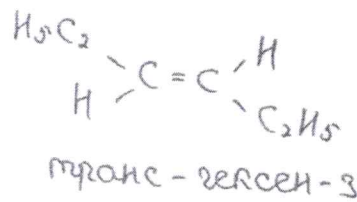 H₅C₂ H
C = C
H C₂H₅
транс - гексен - 3